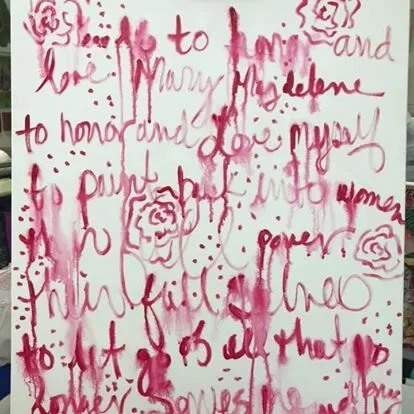 to honor and
love Mary Magdelene
to honor and love myself
to paint back into women
power
their full lives
to let go of all that no
longer serves me and